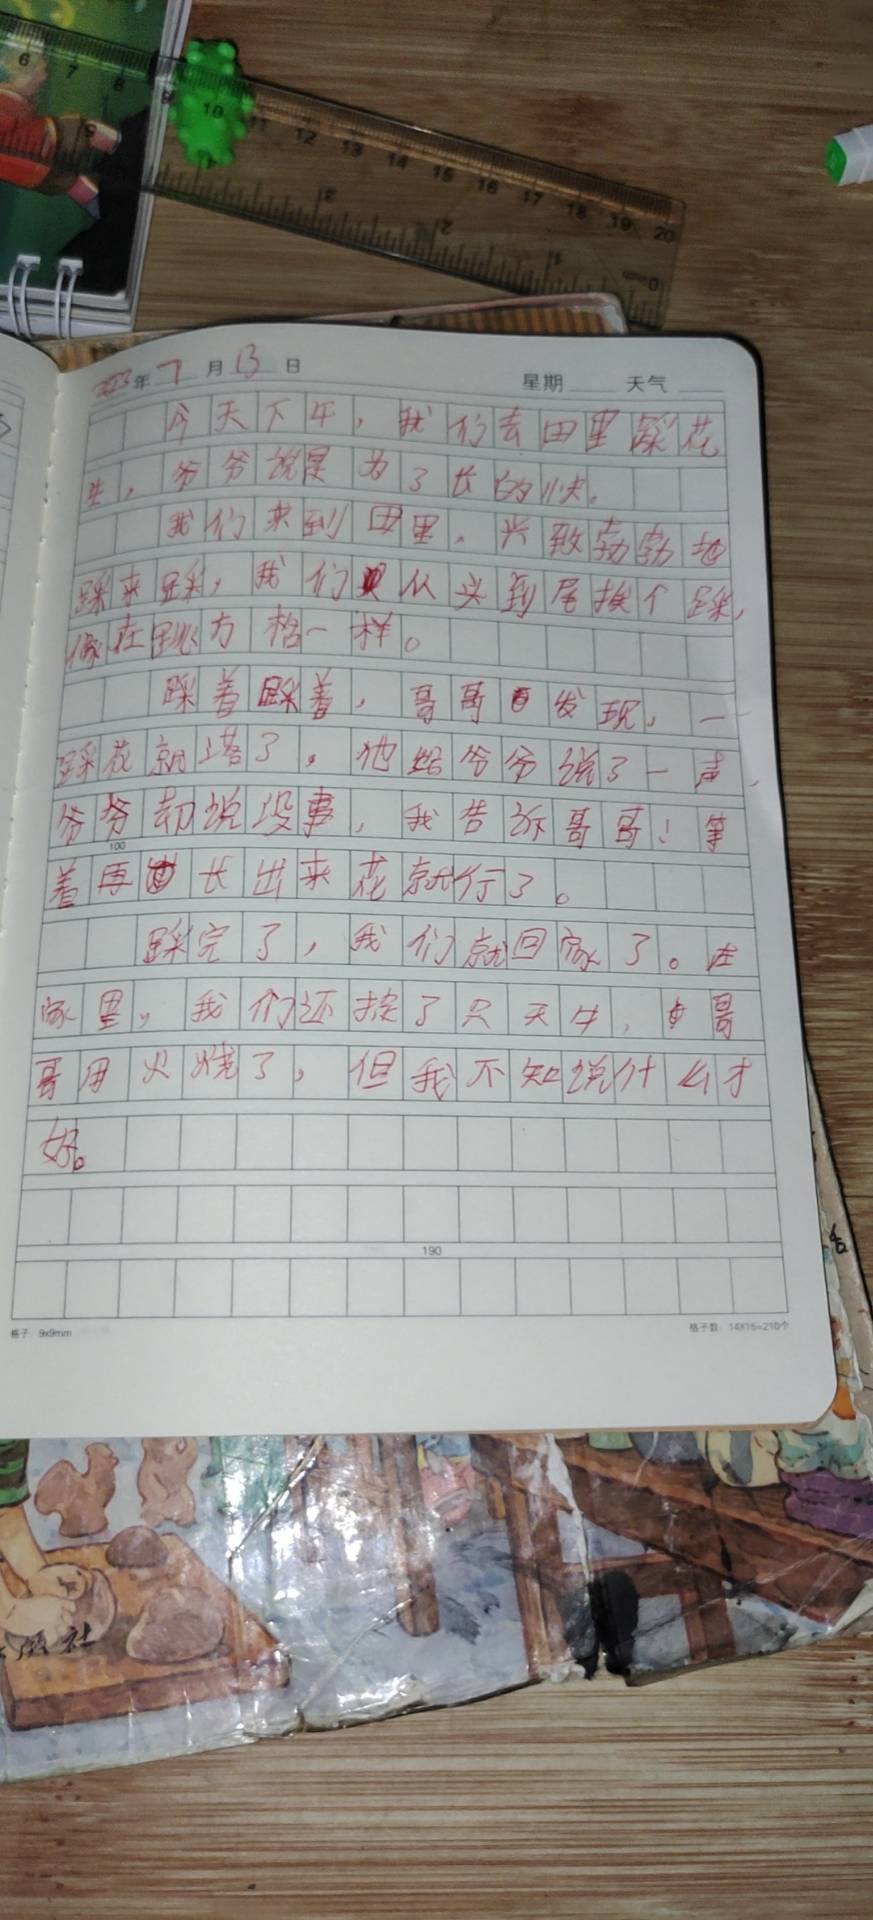 6 7 8 9 10 11 12 13 14 15 16 17 18 19 20
2023年 7 月 13 日 星期 天气
今天下午，我们去田里踩花
生，爷爷说是为了长的快。
我们来到田里，兴致勃勃地
踩来踩，我们从头到尾挨个踩，
像在跳方格一样。
踩着踩着，哥哥发现，一
踩花就塔了，他给爷爷说了一声，
爷爷却说没事，我告诉哥哥！等
着再长出来花就行了。
100
踩完了，我们就回家了。在
家里，我们还按了只天牛，哥
哥用火烧了，但我不知说什么才
好。
190
格子：9x9mm 格子数：14X15=210个
版社